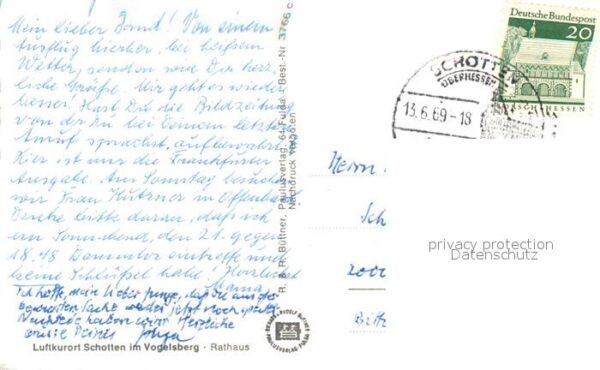 Mein lieber Bernd! Von einem
Ausflug hierher, bei heißem
Wetter, senden wir Dir herz-
liche Grüße. Mir geht es wieder
besser. Hast Du die Bildzeitung
von der Du bei Deinem letzten
Anruf sprachst, aufbewahrt?
Hier ist nur die Frankfurter
Ausgabe. Am Samstag besuchen
wir Frau in Offenbach
Denke bitte daran, daß ich
am Sonnabend, den 21. gegen
18,48 Dammtor eintreffe und
keine Schlüssel habe! Herzlichst
Mama
Ich hoffe, mein lieber Junge, daß Du aus der
Sache weder jetzt noch später
Nachteile haben wirst. Herzliche
Grüße Deines
Luftkurort Schotten im Vogelsberg · Rathaus
R. & R. Büttner, Paulusverlag, 64 Fulda - Best.-Nr. 3766 c
Nachdruck verboten
PAULUSVERLAG FULDA
Deutsche Bundespost
20
HESSEN
SCHOTTEN
OBERHESSEN
13.6.69-18
Herrn
Sch
2000
privacy protection
Datenschutz